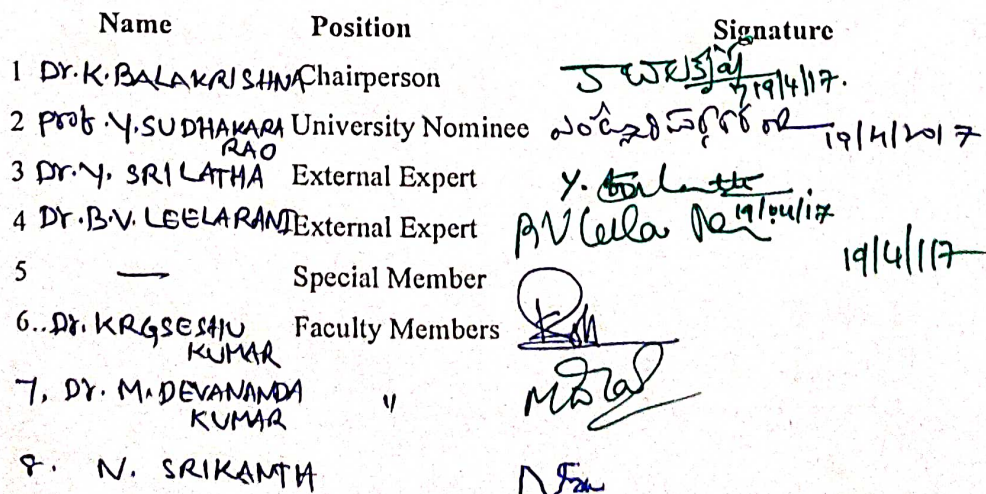 Name Position Signature
1 Dr. K. BALAKRISHNA Chairperson 19/4/17.
2 Prof. Y. SUDHAKARA University Nominee 19/4/2017
RAO
3 Dr. Y. SRILATHA External Expert Y. 19/04/17
4 Dr. B.V. LEELARANI External Expert BV Leela Rani 19/4/17
5 — Special Member
6.. Dr. KRGSESHU Faculty Members
KUMAR
7. Dr. M. DEVANANDA "
KUMAR
8. N. SRIKANTH